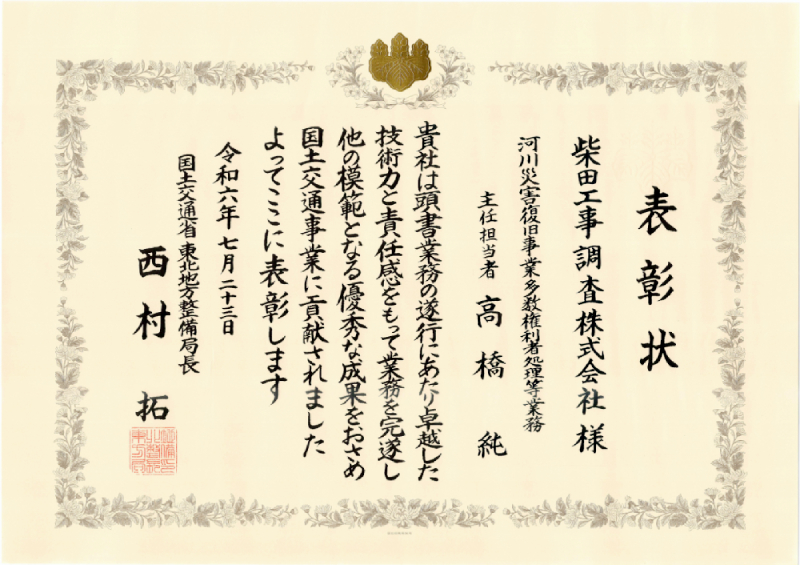 表彰状
柴田工事調査株式会社様
河川災害復旧事業多数権利者処理等業務
主任担当者 高橋 純
貴社は頭書業務の遂行にあたり卓越した
技術力と責任感をもって業務を完遂し
他の模範となる優秀な成果をおさめ
国土交通事業に貢献されました
よってここに表彰します
令和六年七月二十三日
国土交通省 東北地方整備局長
西村 拓